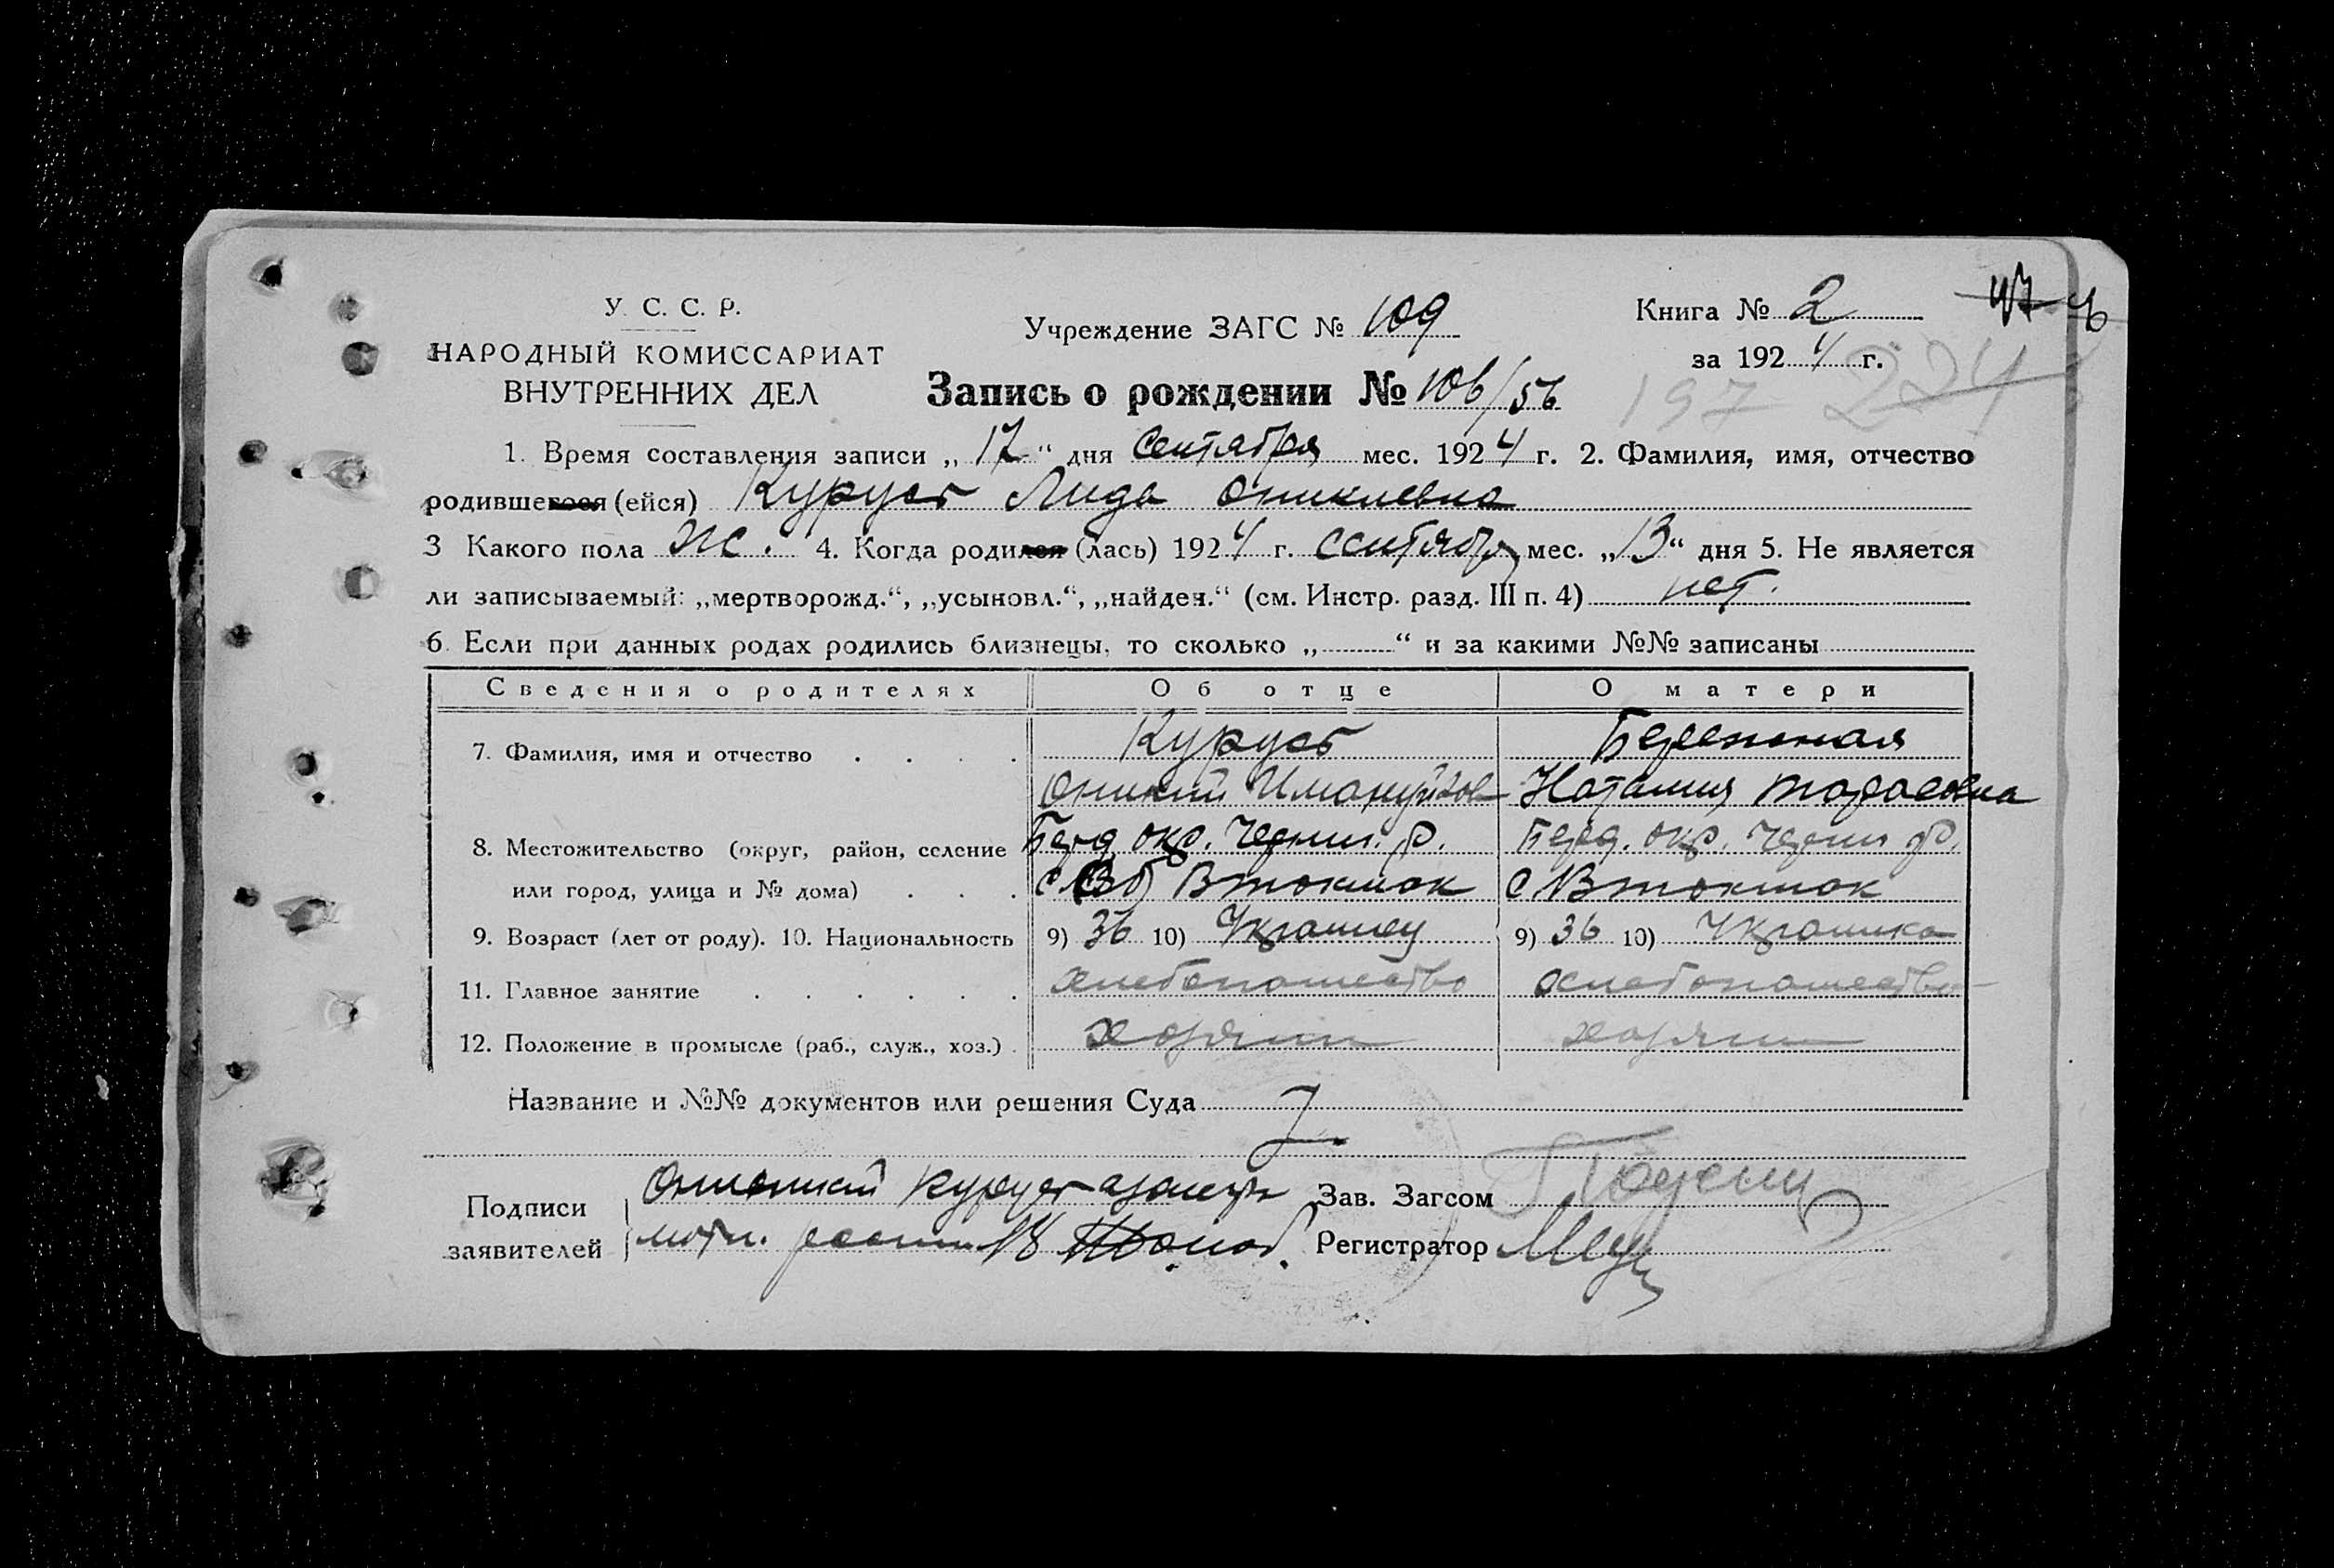 У. С. С. Р.
НАРОДНЫЙ КОМИССАРИАТ
ВНУТРЕННИХ ДЕЛ
Учреждение ЗАГС № 109
Книга № 2
за 1924 г.
47
197 224
Запись о рождении № 106/56
1. Время составления записи „17“ дня Сентября мес. 1924 г. 2. Фамилия, имя, отчество
родившегося (ейся) Курусь Лида Оникиевна
3 Какого пола Ж. 4. Когда родился (лась) 1924 г. сентября мес. „13“ дня 5. Не является
ли записываемый: „мертворожд.“, „усыновл.“, „найден.“ (см. Инстр. разд. III п. 4) нет.
6. Если при данных родах родились близнецы, то сколько „ “ и за какими №№ записаны
Сведения о родителях Об отце О матери
7. Фамилия, имя и отчество . . . . Курусь Бережная
Оникий Имануйлов Наталия Тарасовна
8. Местожительство (округ, район, селение Берд. окр. Черниг. р. Берд. окр. Черниг. р.
или город, улица и № дома) . . . с В Токмак с В Токмак
9. Возраст (лет от роду). 10. Национальность 9) 36 10) Украинец 9) 36 10) Украинка
11. Главное занятие . . . . . . хлебопашество хлебопашество
12. Положение в промысле (раб., служ., хоз.) . хозяин хозяин
Название и №№ документов или решения Суда
Подписи Курусь Зав. Загсом
заявителей Регистратор